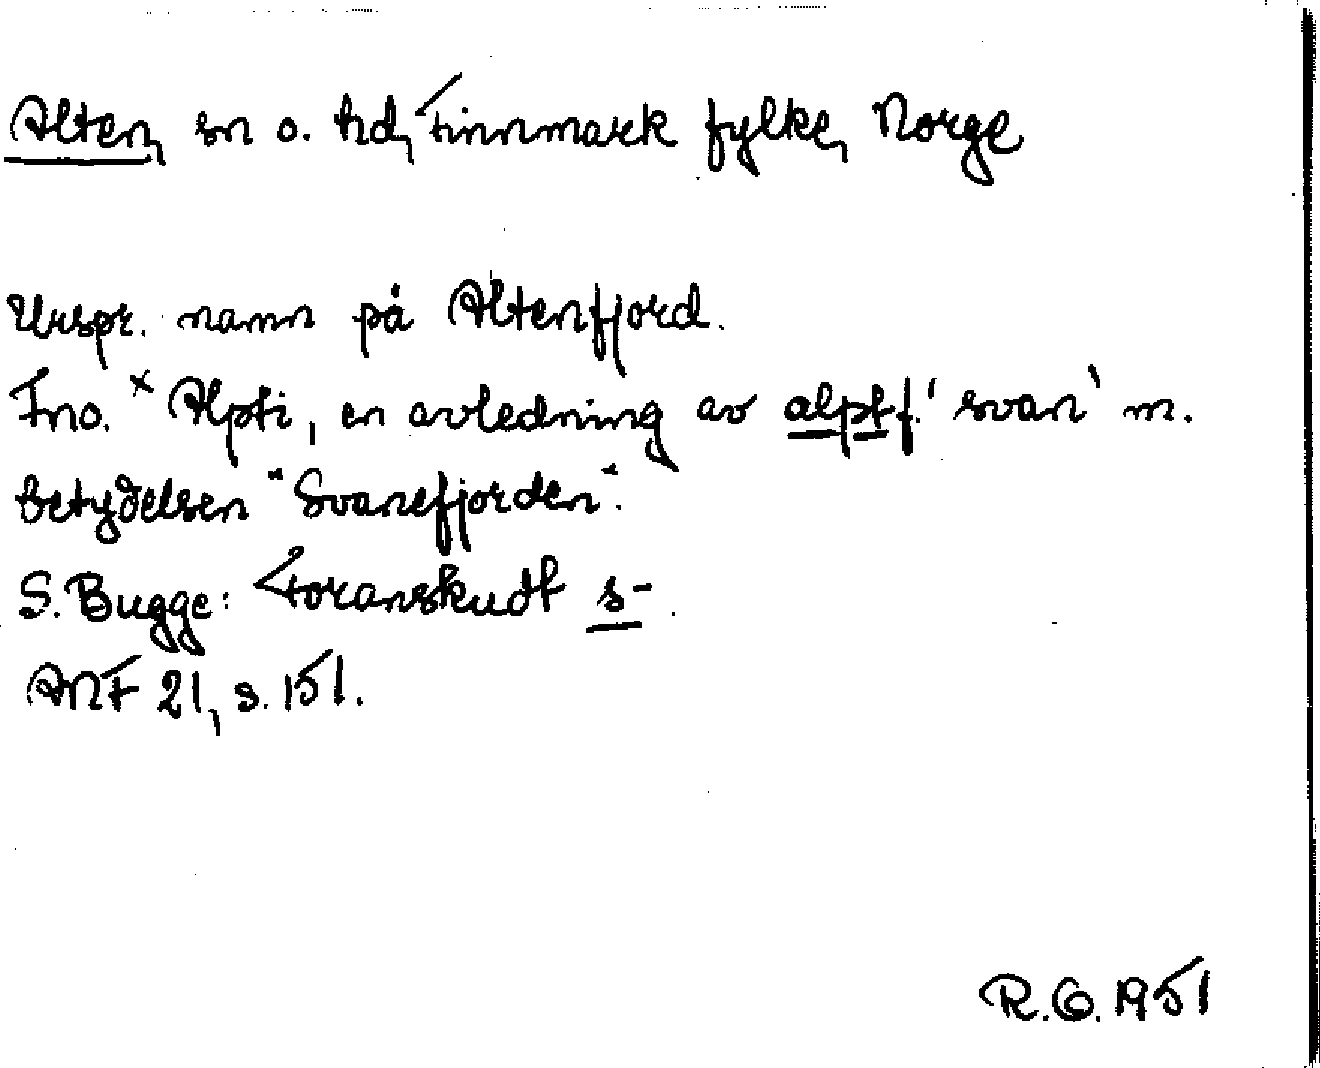 Alten, sn o. hd, Finnmark fylke, Norge
Urspr. namn på Altenfjord.
Fno. × Alpti, en avledning av alpt f. 'svan' m.
betydelsen "Svanefjorden".
S. Bugge: Foranskudt s-
ANF 21, s. 151.
R.G. 1951